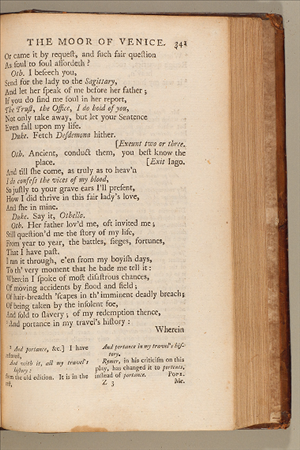 THE MOOR OF VENICE. 341
Or came it by request, and such fair question
As soul to soul affordeth?
Oth. I beseech you,
Send for the lady to the Sagittary,
And let her speak of me before her father;
If you do find me foul in her report,
The Trust, the Office, I do hold of you,
Not only take away, but let your Sentence
Even fall upon my life.
Duke. Fetch Desdemona hither.
[Exeunt two or three.
Oth. Ancient, conduct them, you best know the
place. [Exit Iago.
And till she come, as truly as to heav'n
I do confess the vices of my blood,
So justly to your grave ears I'll present,
How I did thrive in this fair lady's love,
And she in mine.
Duke. Say it, Othello.
Oth. Her father lov'd me, oft invited me;
Still question'd me the story of my life,
From year to year, the battles, sieges, fortunes,
That I have past.
I ran it through, e'en from my boyish days,
To th' very moment that he bade me tell it:
Wherein I spoke of most disastrous chances,
Of moving accidents by flood and field;
Of hair-breadth 'scapes in th' imminent deadly breach;
Of being taken by the insolent foe,
And sold to slavery; of my redemption thence,
And portance in my travel's history:
Wherein
And portance, &c.] I have
And with it, all my travel's
history:
from the old edition. It is in the
And portance in my travel's his-
tory.
Rymer, in his criticism on this
play, has changed it to portents,
instead of portance. POPE.
Z 3 Me.